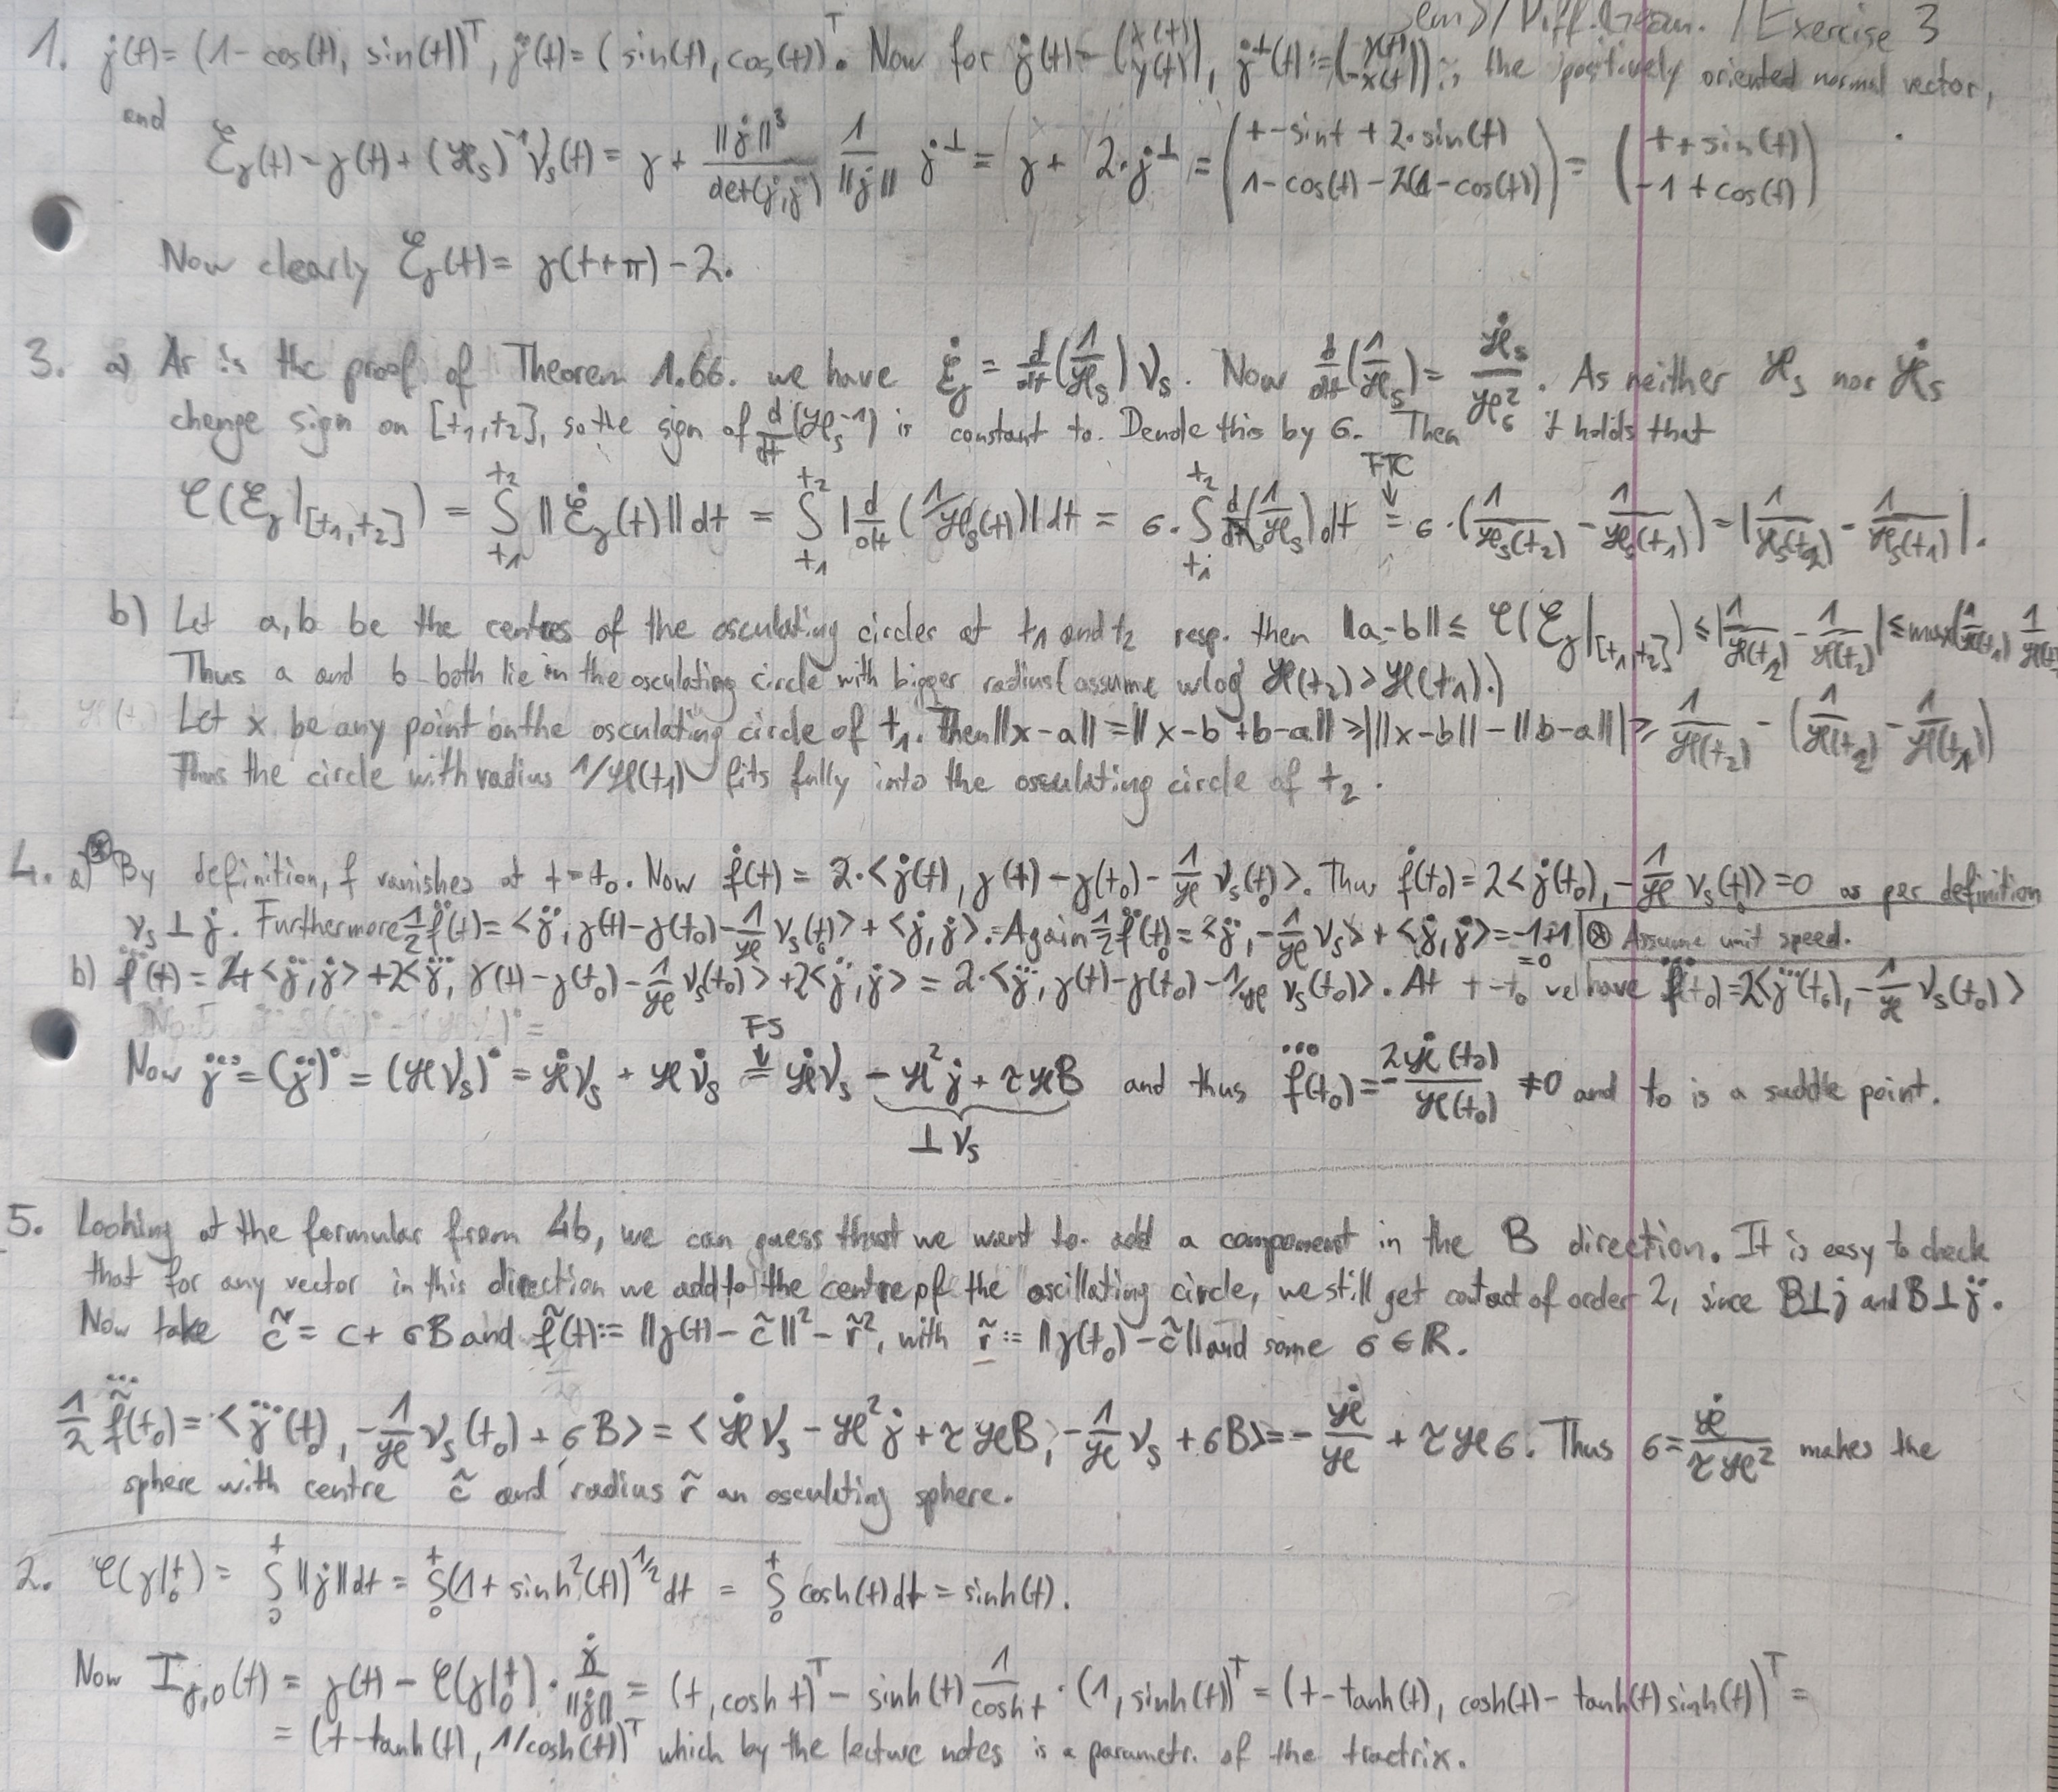 Diff.Geom. / Exercise 3
1. γ̇(t) = (1 - cos(t), sin(t))ᵀ, γ̈(t) = (sin(t), cos(t))ᵀ. Now for γ̇(t) = (x(t) y(t)), γ̇^⊥(t) := (y(t) -x(t)) is the positively oriented normal vector,
and
ℰ_γ(t) = γ(t) + (ϰ_s)^-1 ν_s(t) = γ + ||γ̇||³/det(γ̇,γ̈) 1/||γ̇|| γ̇^⊥ = γ + 2·γ̇^⊥ = (t - sin t + 2·sin(t) 1 - cos(t) - 2(1 - cos(t))) = (t + sin(t) -1 + cos(t))
Now clearly ℰ_γ(t) = γ(t+π) - 2.
3. a) As in the proof of Theorem 1.66. we have ℰ̇_γ = d/dt(1/ϰ_s) ν_s. Now d/dt(1/ϰ_s) = ϰ̇_s/ϰ_s². As neither ϰ_s nor ϰ̇_s
change sign on [t₁,t₂], so the sign of d/dt(ϰ_s^-1) is constant to. Denote this by σ. Then it holds that
ℒ(ℰ_γ|[t₁,t₂]) = ∫_t₁^t₂ ||ℰ̇_γ(t)|| dt = ∫_t₁^t₂ |d/dt(1/ϰ_s(t))| dt = σ·∫_t₁^t₂ d/dt(1/ϰ_s) dt =(FTC) σ·(1/ϰ_s(t₂) - 1/ϰ_s(t₁)) = |1/ϰ_s(t₂) - 1/ϰ_s(t₁)|.
b) Let a,b be the centres of the osculating circles at t₁ and t₂ resp. then ||a-b|| ≤ ℒ(ℰ_γ|[t₁,t₂]) ≤ |1/ϰ(t₁) - 1/ϰ(t₂)| ≤ max(1/ϰ(t₁), 1/ϰ(t₂)
Thus a and b both lie in the osculating circle with bigger radius (assume wlog ϰ(t₂) > ϰ(t₁).)
Let x be any point on the osculating circle of t₁. Then ||x-a|| = ||x-b+b-a|| ≥ |||x-b|| - ||b-a||| ≥ 1/ϰ(t₂) - (1/ϰ(t₂) - 1/ϰ(t₁))
Thus the circle with radius 1/ϰ(t₁) fits fully into the osculating circle of t₂.
4. a) ⊛ By definition, f vanishes at t = t₀. Now ḟ(t) = 2·<γ̇(t), γ(t) - γ(t₀) - 1/ϰ ν_s(t₀)>. Thus ḟ(t₀) = 2<γ̇(t₀), -1/ϰ ν_s(t₀)> = 0 as per definition
ν_s ⊥ γ̇. Furthermore 1/2 f̈(t) = <γ̈, γ(t) - γ(t₀) - 1/ϰ ν_s(t₀)> + <γ̇, γ̇>. Again 1/2 f̈(t₀) = <γ̈, -1/ϰ ν_s> + <γ̇, γ̇> = -1+1 = 0 ⊛ Assume unit speed.
b) f⃛(t) = 4<γ̈, γ̇> + 2<γ⃛, γ(t) - γ(t₀) - 1/ϰ ν_s(t₀)> + 2<γ̈, γ̇> = 2·<γ⃛, γ(t) - γ(t₀) - 1/ϰ ν_s(t₀)>. At t = t₀ we have f⃛(t₀) = 2<γ⃛(t₀), -1/ϰ ν_s(t₀)>
Now γ⃛ = (γ̈)˙ = (ϰν_s)˙ = ϰ̇ν_s + ϰν̇_s =(FS) ϰ̇ν_s - ϰ²γ̇ + τϰB and thus f⃛(t₀) = -2ϰ̇(t₀)/ϰ(t₀) ≠ 0 and t₀ is a saddle point.
⊥ ν_s
5. Looking at the formular from 4b, we can guess that we want to add a component in the B direction. It is easy to check
that for any vector in this direction we add to the centre of the oscillating circle, we still get contact of order 2, since B⊥γ̇ and B⊥γ̈.
Now take c̃ = c + σB and f̃(t) := ||γ(t) - c̃||² - r̃², with r̃ := ||γ(t₀) - c̃|| and some σ ∈ ℝ.
1/2 f̃⃛(t₀) = <γ⃛(t₀), -1/ϰ ν_s(t₀) + σB> = <ϰ̇ν_s - ϰ²γ̇ + τϰB, -1/ϰ ν_s + σB> = -ϰ̇/ϰ + τϰσ. Thus σ = ϰ̇/τϰ² makes the
sphere with centre c̃ and radius r̃ an osculating sphere.
2. ℒ(γ|₀^t) = ∫₀^t ||γ̇|| dt = ∫₀^t (1 + sinh²(t))^1/2 dt = ∫₀^t cosh(t) dt = sinh(t).
Now I_γ,0(t) = γ(t) - ℒ(γ|₀^t)·γ̇/||γ̇|| = (t, cosh t)ᵀ - sinh(t) 1/cosh t · (1, sinh(t))ᵀ = (t - tanh(t), cosh(t) - tanh(t) sinh(t))ᵀ =
= (t - tanh(t), 1/cosh(t))ᵀ which by the lecture notes is a parametr. of the tractrix.